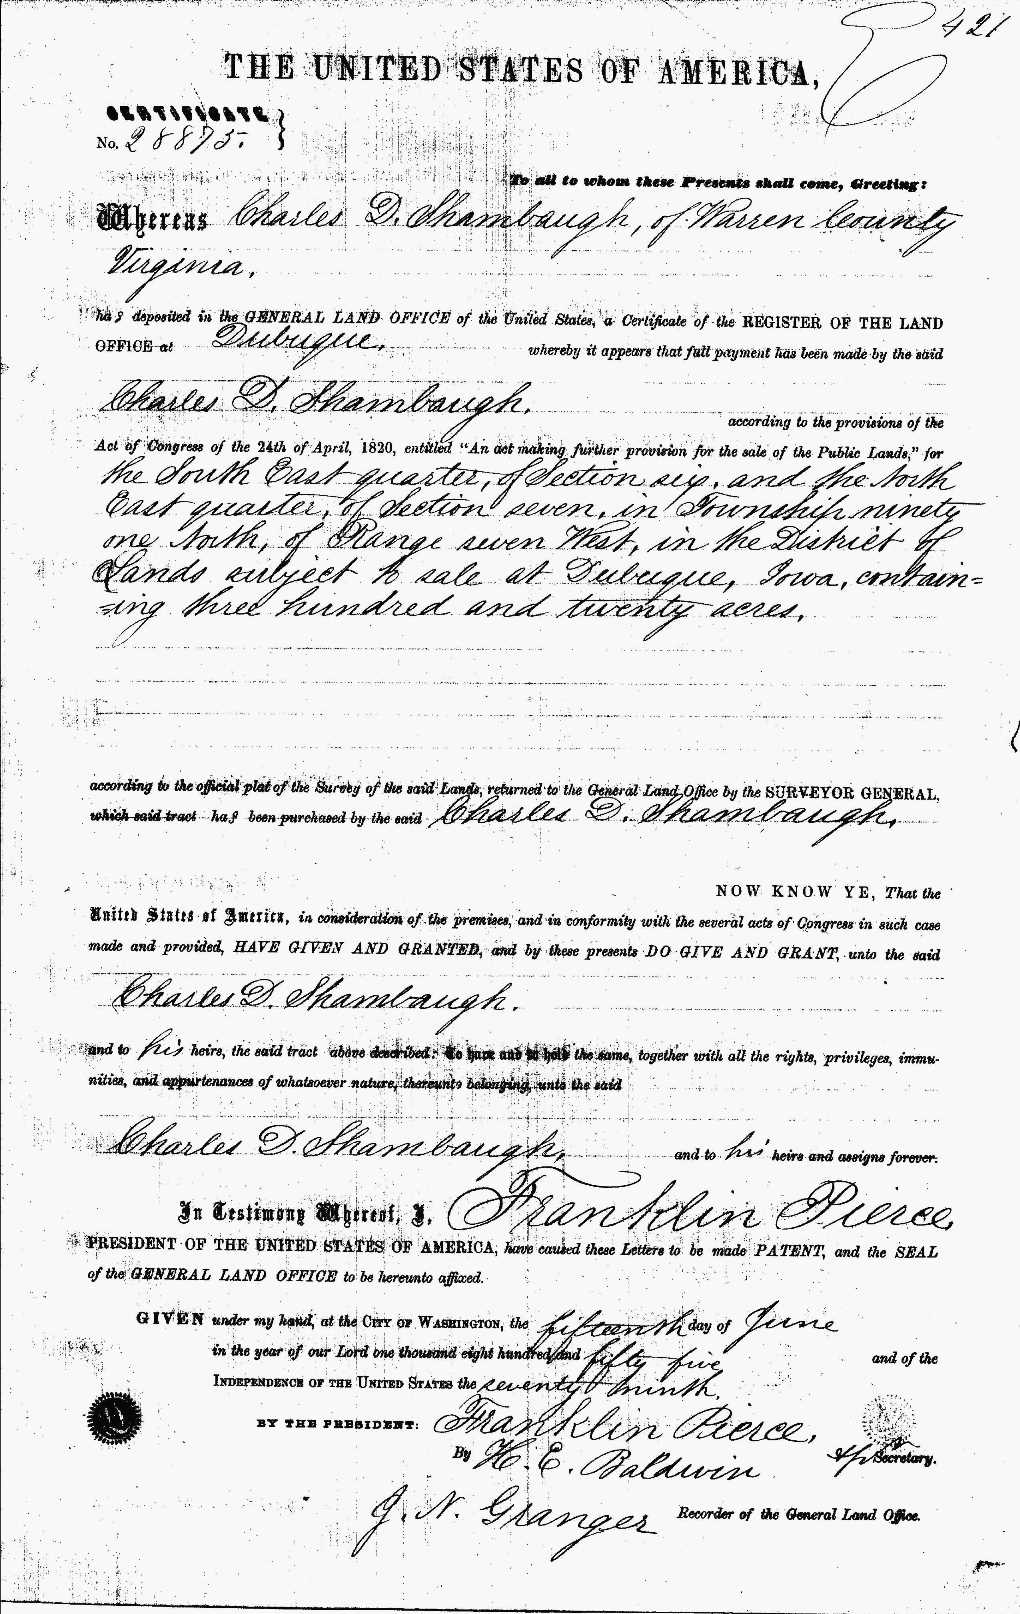 421
THE UNITED STATES OF AMERICA,
CERTIFICATE
No. 28875.
To all to whom these Presents shall come, Greeting:
Whereas Charles D. Shambaugh, of Warren County
Virginia.
has deposited in the GENERAL LAND OFFICE of the United States, a Certificate of the REGISTER OF THE LAND
OFFICE at Dubuque. whereby it appears that full payment has been made by the said
Charles D. Shambaugh. according to the provisions of the
Act of Congress of the 24th of April, 1820, entitled "An act making further provision for the sale of the Public Lands," for
the South East quarter, of Section six, and the North
East quarter, of Section seven, in Township ninety
one North, of Range seven West, in the District of
Lands subject to sale at Dubuque, Iowa, contain=
=ing three hundred and twenty acres.
according to the official plat of the Survey of the said Lands, returned to the General Land Office by the SURVEYOR GENERAL,
which said tract has been purchased by the said Charles D. Shambaugh.
NOW KNOW YE, That the
United States of America, in consideration of the premises, and in conformity with the several acts of Congress in such case
made and provided, HAVE GIVEN AND GRANTED, and by these presents DO GIVE AND GRANT, unto the said
Charles D. Shambaugh.
and to his heirs, the said tract above described: To have and to hold the same, together with all the rights, privileges, immu-
nities, and appurtenances of whatsoever nature, thereunto belonging, unto the said
Charles D. Shambaugh, and to his heirs and assigns forever.
In Testimony Whereof, I, Franklin Pierce,
PRESIDENT OF THE UNITED STATES OF AMERICA, have caused these Letters to be made PATENT, and the SEAL
of the GENERAL LAND OFFICE to be hereunto affixed.
GIVEN under my hand, at the CITY OF WASHINGTON, the fifteenth day of June
in the year of our Lord one thousand eight hundred and fifty five and of the
INDEPENDENCE OF THE UNITED STATES the seventy ninth.
BY THE PRESIDENT: Franklin Pierce,
By H. E. Baldwin Secretary.
J. N. Granger Recorder of the General Land Office.